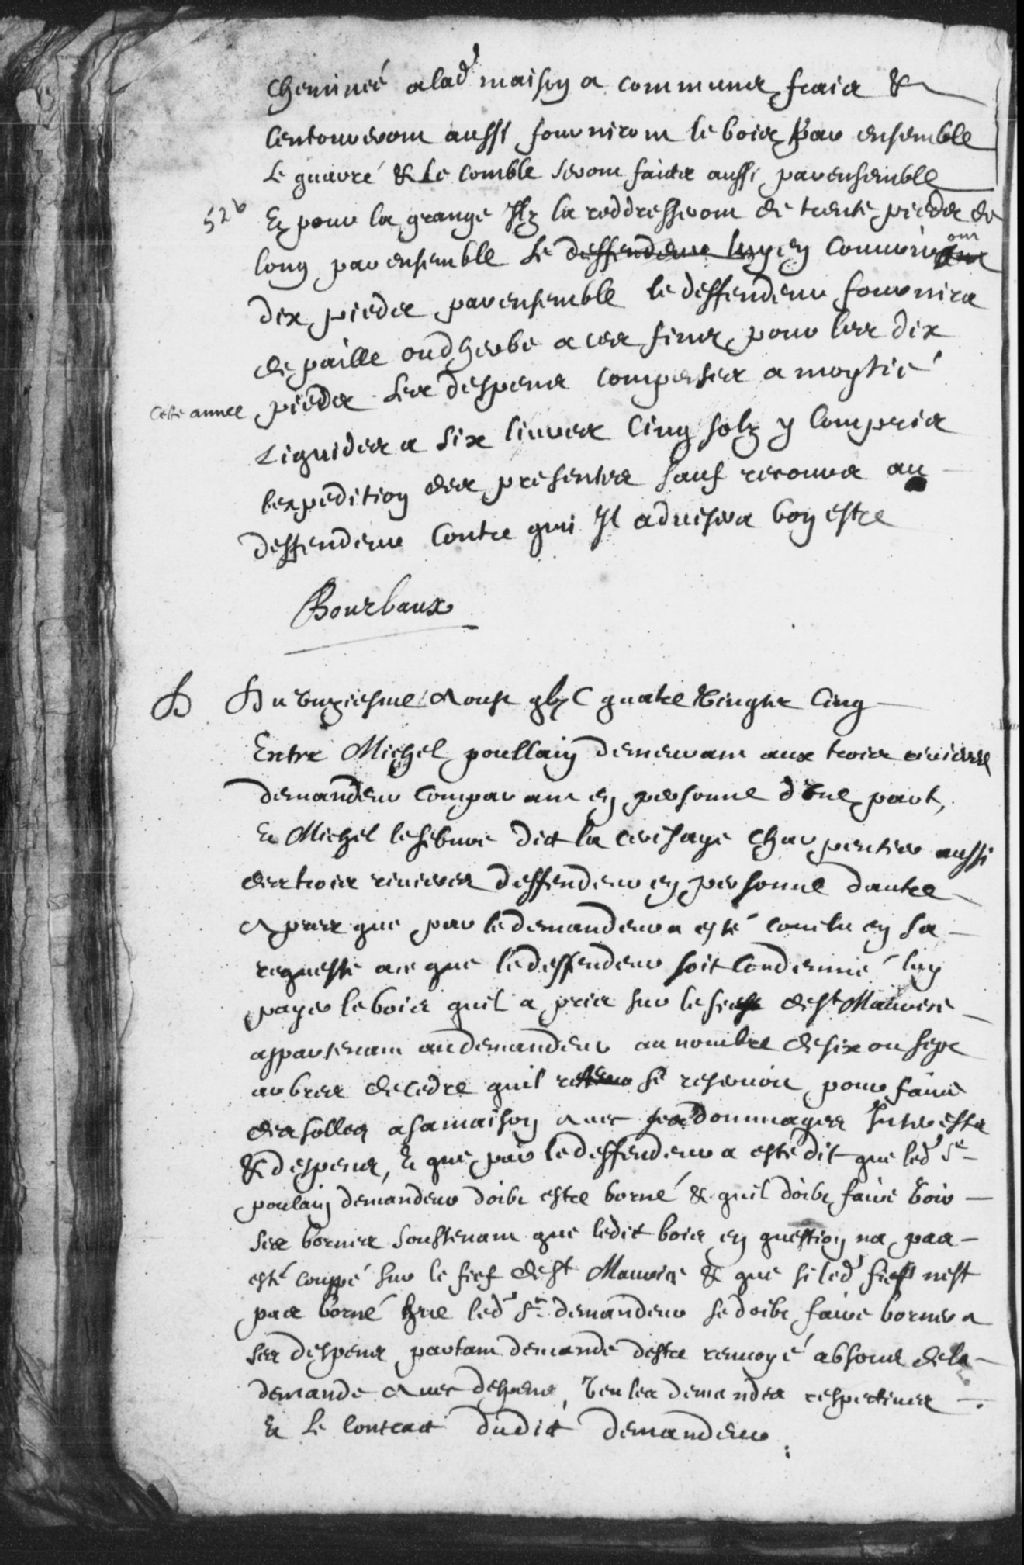 cheminée a lad maison a communs frais &
lentoureront aussi fourniront le bois par ensemble
le guivré & le comble seront faicts aussi par ensemble
526
Et pour la grange Ilz la reddresseront de trente pieds de
long par ensemble Le deffendeur luy en couvriront
dix pieds par ensemble le deffendeur fournira
de paille ou dherbe a ces fins pour les dix
cette annee
pieds Les despens compensez a moytié
Liquidez a six livres cinq solz y compris
lexpedition des presentes sauf recours au
deffendeur contre qui Il advisera bon estre
Bourbaux
Du unziesme Aoust gbjC quatre vingts cinq
Entre Michel poullain demeurant aux trois rivieres
demandeur comparant en personne dune part,
Et Michel lefebure dit la cerisaye charpentier aussi
des trois rivieres deffendeur en personne dautre
Apres que par le demandeur a esté conclu en sa
requeste a ce que le deffendeur soit condemné luy
payer le bois quil a pris sur le fief de St Maurice
appartenant au demandeur au nombre de six ou sept
arbres de cedre quil se reservoit pour faire
des solles a sa maison avec ses dommages Interests
& despens, Et que par le deffendeur a esté dit que led Sr
poulain demandeur doibt estre borné & quil doibt faire voir
ses bornes soustenant que ledit bois en question na pas
esté coupé sur le fief de St Maurice & que si led fief nest
pas borné que led Sr demandeur se doibt faire borner a
ses despens partant demande destre renvoyé absous de la
demande avec despens, Veu les demandes respectives
Et Le contract dudit demandeur